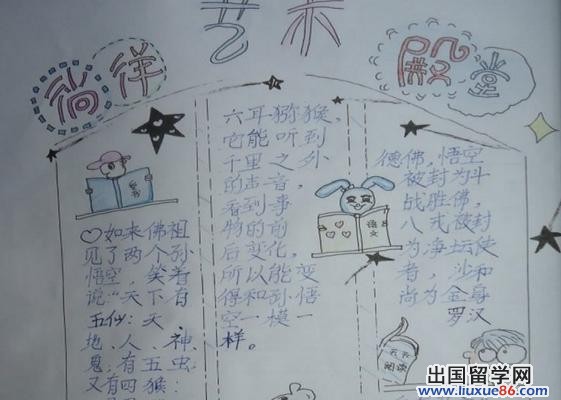 艺术
徜徉
殿堂
♡如来佛祖
见了两个孙
悟空，笑着
说："天下有
五仙：天、
地、人、神、
鬼；有五虫
又有四猴：
六耳猕猴，
它能听到
千里之外
的声音，
看到事
物的前
后变化，
所以能变
得和孙悟
空一模一
样。
语文
德佛，悟空
被封为斗
战胜佛，
八戒被封
为净坛使
者，沙和
尚为金身
罗汉
天天
阅读
出国留学网
www.liuxue86.com